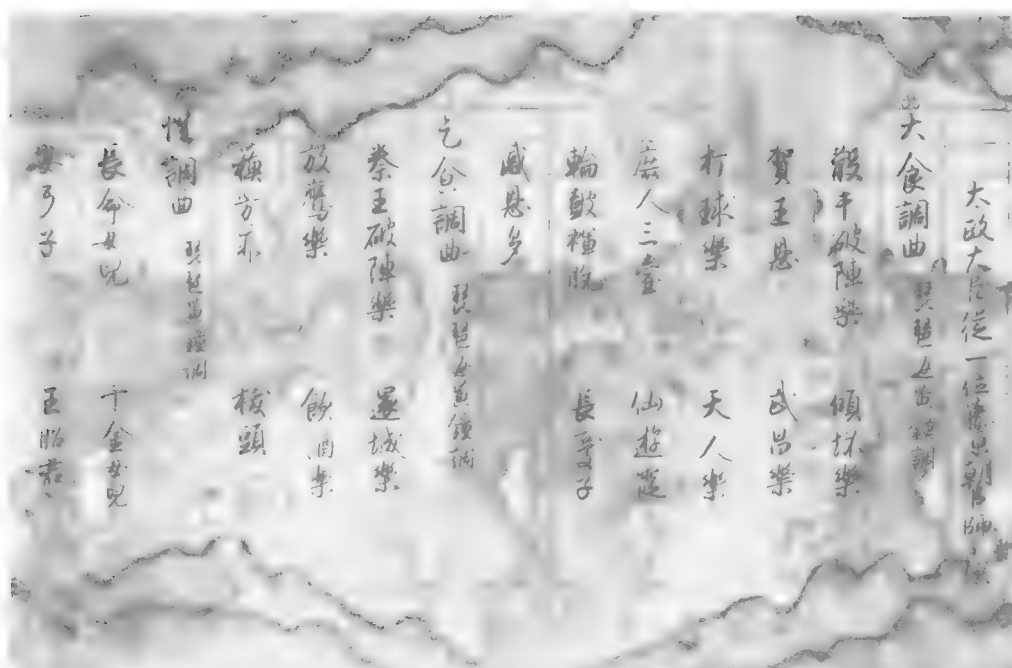 大政大臣從一位藤原朝臣師長撰
大食調曲 琵琶 黃鐘調
散手破陣樂 傾坏樂
賀王恩 武昌樂
打球樂 天人樂
庶人三臺 仙遊霞
輪鼓褌脫 長慶子
感恩多
乞食調曲 琵琶 黃鐘調
秦王破陣樂 還城樂
放鷹樂 飲酒樂
蘇芳菲 拔頭
性調曲 琵琶 調
長命女兒 千金女兒
弓子 王昭君